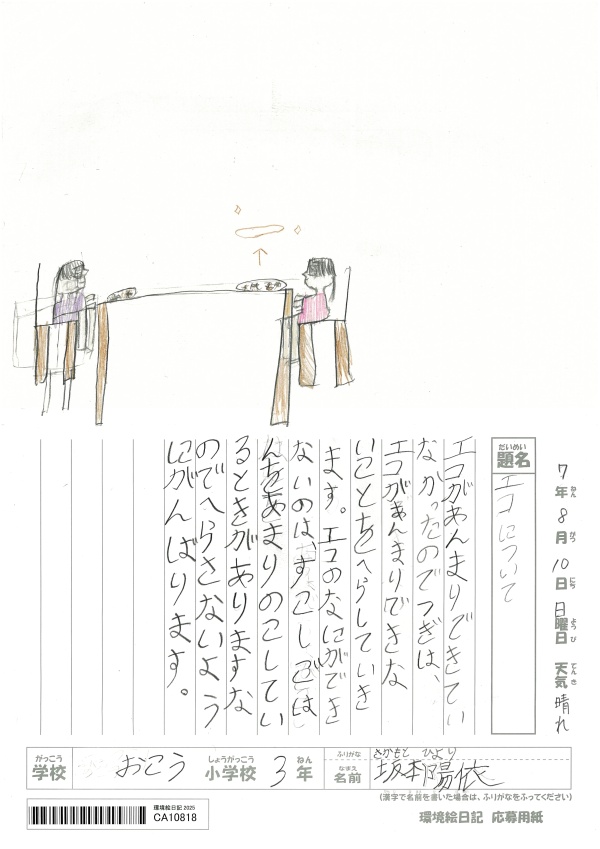 7年8月10日日曜日 天気晴れ
ねん がつ にち ようび てんき
だいめい
題名
エコについて
エコがあんまりできてい
なかったのでつぎは、
エコがあんまりできな
いことをへらしていき
ます。エコのなにができ
ないのは、すこしごは
んをあまりのこしてい
るときがありますな
のでへらさないよう
にがんばります。
がっこう しょうがっこう ねん ふりがな さかもと ひより
学校 おこう 小学校 3年 なまえ 名前 坂本陽依
(漢字で名前を書いた場合は、ふりがなをふってください)
環境絵日記 応募用紙
環境絵日記 2025
CA10818